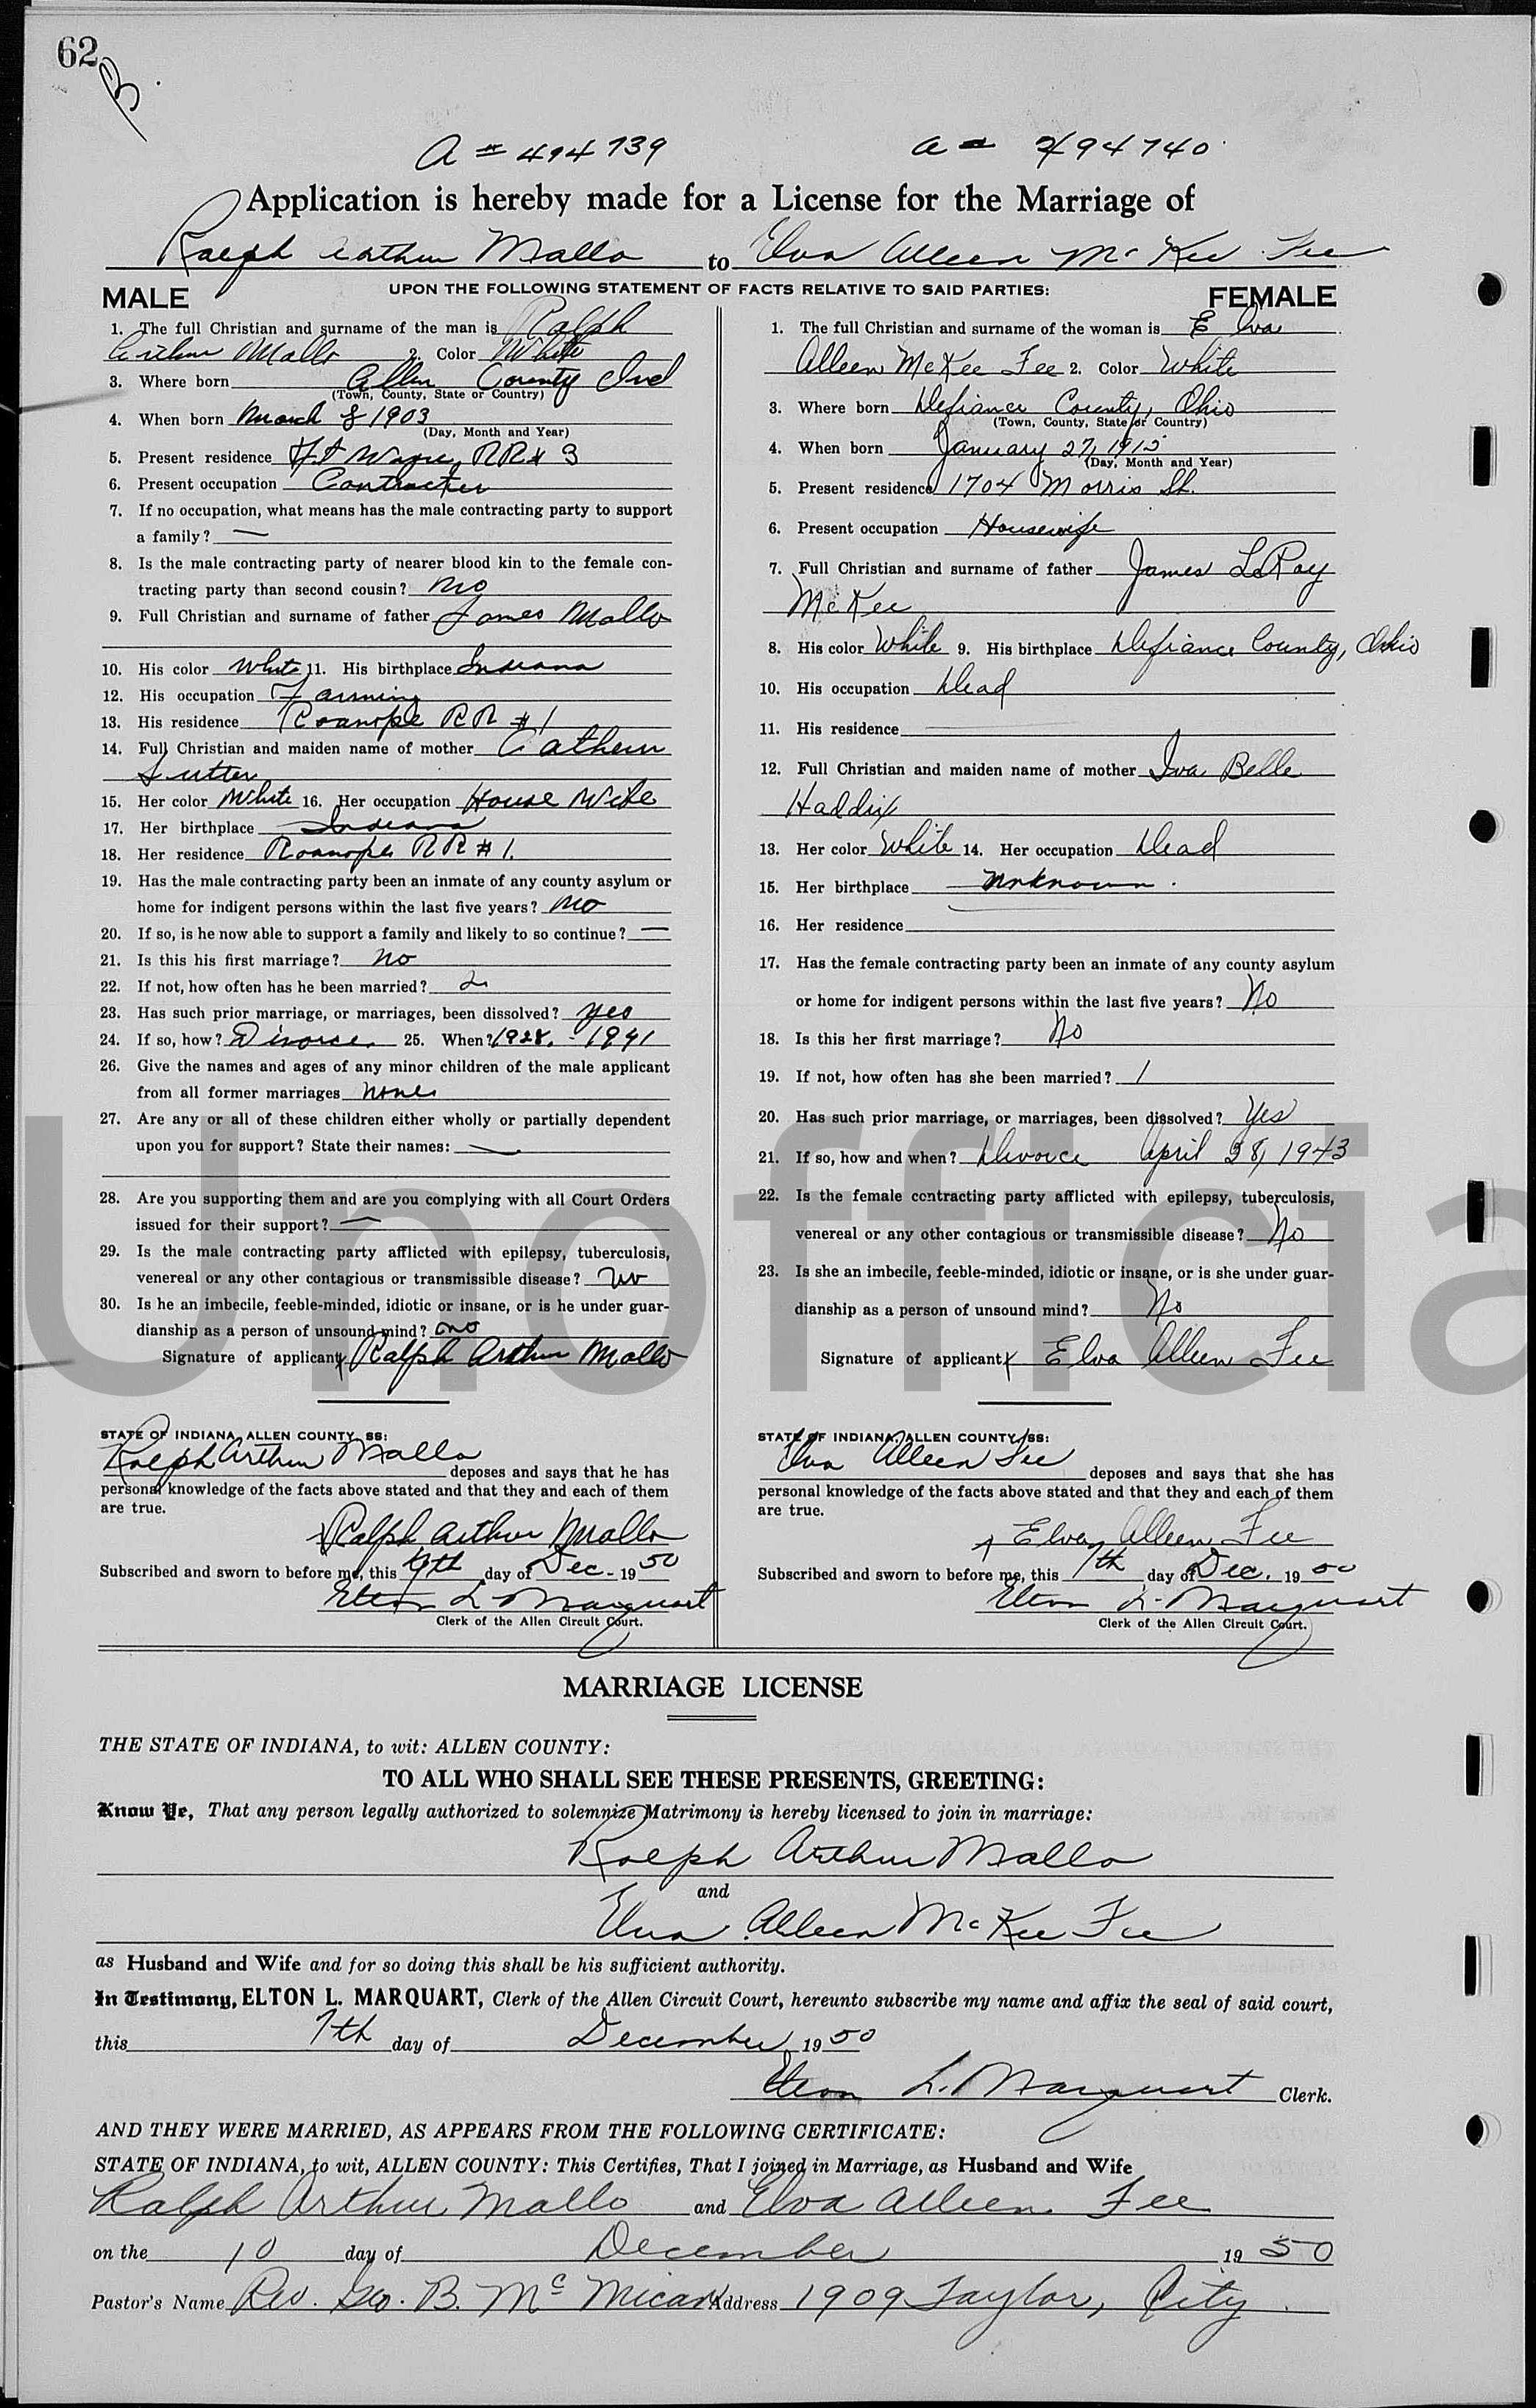 62
B.
A # 494739
a # 494740
Application is hereby made for a License for the Marriage of
Ralph Arthur Mallo to Elva Alleen McKee Fee
UPON THE FOLLOWING STATEMENT OF FACTS RELATIVE TO SAID PARTIES:
MALE
1. The full Christian and surname of the man is Ralph
Arthur Mallo 2. Color White
3. Where born Allen County Ind
(Town, County, State or Country)
4. When born March 8 1903
(Day, Month and Year)
5. Present residence Ft Wayne, RR# 3
6. Present occupation Contractor
7. If no occupation, what means has the male contracting party to support
a family? —
8. Is the male contracting party of nearer blood kin to the female con-
tracting party than second cousin? no
9. Full Christian and surname of father James Mallo
10. His color White 11. His birthplace Indiana
12. His occupation Farming
13. His residence Roanoke RR #1
14. Full Christian and maiden name of mother Cathern
Sutter
15. Her color White 16. Her occupation House Wife
17. Her birthplace Indiana
18. Her residence Roanoke RR #1.
19. Has the male contracting party been an inmate of any county asylum or
home for indigent persons within the last five years? no
20. If so, is he now able to support a family and likely to so continue? —
21. Is this his first marriage? no
22. If not, how often has he been married? 2
23. Has such prior marriage, or marriages, been dissolved? yes
24. If so, how? Divorce. 25. When? 1928. - 1941
26. Give the names and ages of any minor children of the male applicant
from all former marriages none
27. Are any or all of these children either wholly or partially dependent
upon you for support? State their names: —
28. Are you supporting them and are you complying with all Court Orders
issued for their support? —
29. Is the male contracting party afflicted with epilepsy, tuberculosis,
venereal or any other contagious or transmissible disease? no
30. Is he an imbecile, feeble-minded, idiotic or insane, or is he under guar-
dianship as a person of unsound mind? no
Signature of applicant x Ralph Arthur Mallo
STATE OF INDIANA, ALLEN COUNTY, SS:
Ralph Arthur Mallo deposes and says that he has
personal knowledge of the facts above stated and that they and each of them
are true.
x Ralph Arthur Mallo
Subscribed and sworn to before me, this 7th day of Dec. 1950
Elton L. Marquart
Clerk of the Allen Circuit Court.
FEMALE
1. The full Christian and surname of the woman is Elva
Alleen McKee Fee 2. Color White
3. Where born Defiance County, Ohio
(Town, County, State or Country)
4. When born January 27, 1912
(Day, Month and Year)
5. Present residence 1704 Morris St.
6. Present occupation Housewife
7. Full Christian and surname of father James LeRoy
McKee
8. His color White 9. His birthplace Defiance County, Ohio
10. His occupation Dead
11. His residence
12. Full Christian and maiden name of mother Iva Belle
Haddix
13. Her color White 14. Her occupation Dead
15. Her birthplace Unknown.
16. Her residence
17. Has the female contracting party been an inmate of any county asylum
or home for indigent persons within the last five years? No
18. Is this her first marriage? No
19. If not, how often has she been married? 1
20. Has such prior marriage, or marriages, been dissolved? Yes
21. If so, how and when? Divorce April 28, 1943
22. Is the female contracting party afflicted with epilepsy, tuberculosis,
venereal or any other contagious or transmissible disease? No
23. Is she an imbecile, feeble-minded, idiotic or insane, or is she under guar-
dianship as a person of unsound mind? No
Signature of applicant x Elva Alleen Fee
STATE OF INDIANA, ALLEN COUNTY, SS:
Elva Alleen Fee deposes and says that she has
personal knowledge of the facts above stated and that they and each of them
are true.
x Elva Alleen Fee
Subscribed and sworn to before me, this 7th day of Dec. 1950
Elton L. Marquart
Clerk of the Allen Circuit Court.
Unofficia
MARRIAGE LICENSE
THE STATE OF INDIANA, to wit: ALLEN COUNTY:
TO ALL WHO SHALL SEE THESE PRESENTS, GREETING:
Know Ye, That any person legally authorized to solemnize Matrimony is hereby licensed to join in marriage:
Ralph Arthur Mallo
and
Elva Alleen McKee Fee
as Husband and Wife and for so doing this shall be his sufficient authority.
In Testimony, ELTON L. MARQUART, Clerk of the Allen Circuit Court, hereunto subscribe my name and affix the seal of said court,
this 7th day of December 1950
Elton L. Marquart Clerk.
AND THEY WERE MARRIED, AS APPEARS FROM THE FOLLOWING CERTIFICATE:
STATE OF INDIANA, to wit, ALLEN COUNTY: This Certifies, That I joined in Marriage, as Husband and Wife
Ralph Arthur Mallo and Elva Alleen Fee
on the 10 day of December 1950
Pastor's Name Rev. Geo. B. McMican Address 1909 Taylor, City.